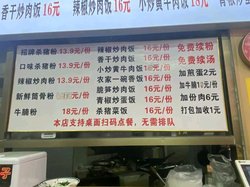 香干炒肉饭 16元 辣椒炒肉饭 16元 小炒黄牛肉饭 18元
招牌杀猪粉 13.9元/份 辣椒炒肉饭 16元/份 免费续粉
口味杀猪粉 13.9元/份 香干炒肉饭 16元/份 免费续汤
辣椒炒肉粉 13.9元/份 小炒黄牛肉饭 18元/份 加煎蛋2元
新鲜筒骨粉 元/份 农家一碗香饭 16元/份 加牛腩10元/份
牛腩粉 18元/份 莴笋炒肉饭 16元/份 加份肉6元
青椒炒蛋饭 16元/份 打包加收1元
杀猪菜饭 16元/份
本店支持桌面扫码点餐，无需排队